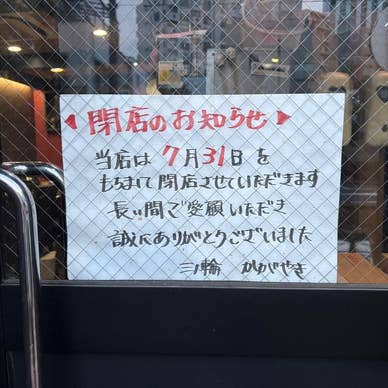 閉店のお知らせ
当店は7月31日を
もちまして閉店させていただきます
長い間ご愛顧いただき
誠にありがとうございました
三ノ輪 かがやき